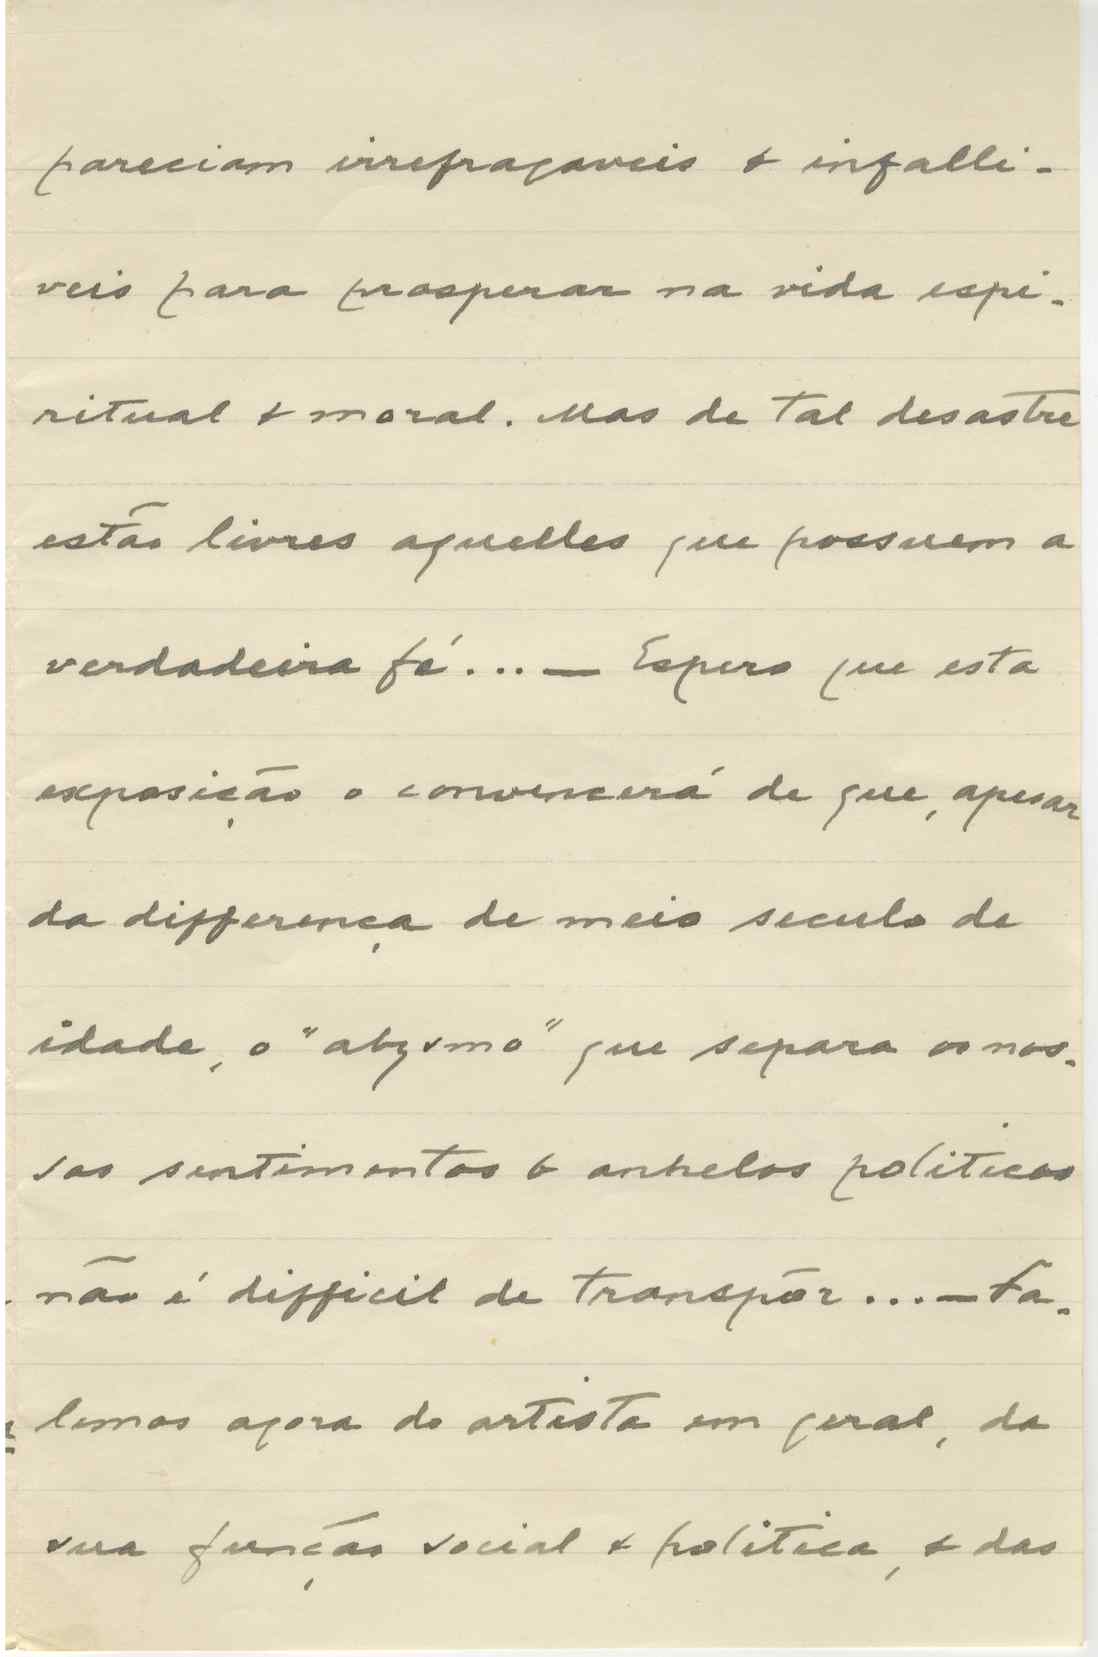 pareciam irrefragaveis & infalli-
veis para prosperar na vida espi-
ritual & moral. Mas de tal desastre
estão livres aquelles que possuem a
verdadeira fé...— Espero que esta
exposição o convencerá de que, apesar
da differença de meio seculo de
idade, o "abysmo" que separa os nos-
sos sentimentos & anhelos politicos
não é difficil de transpôr...—Fa-
lemos agora do artista em geral, da
sua função social & politica, & das